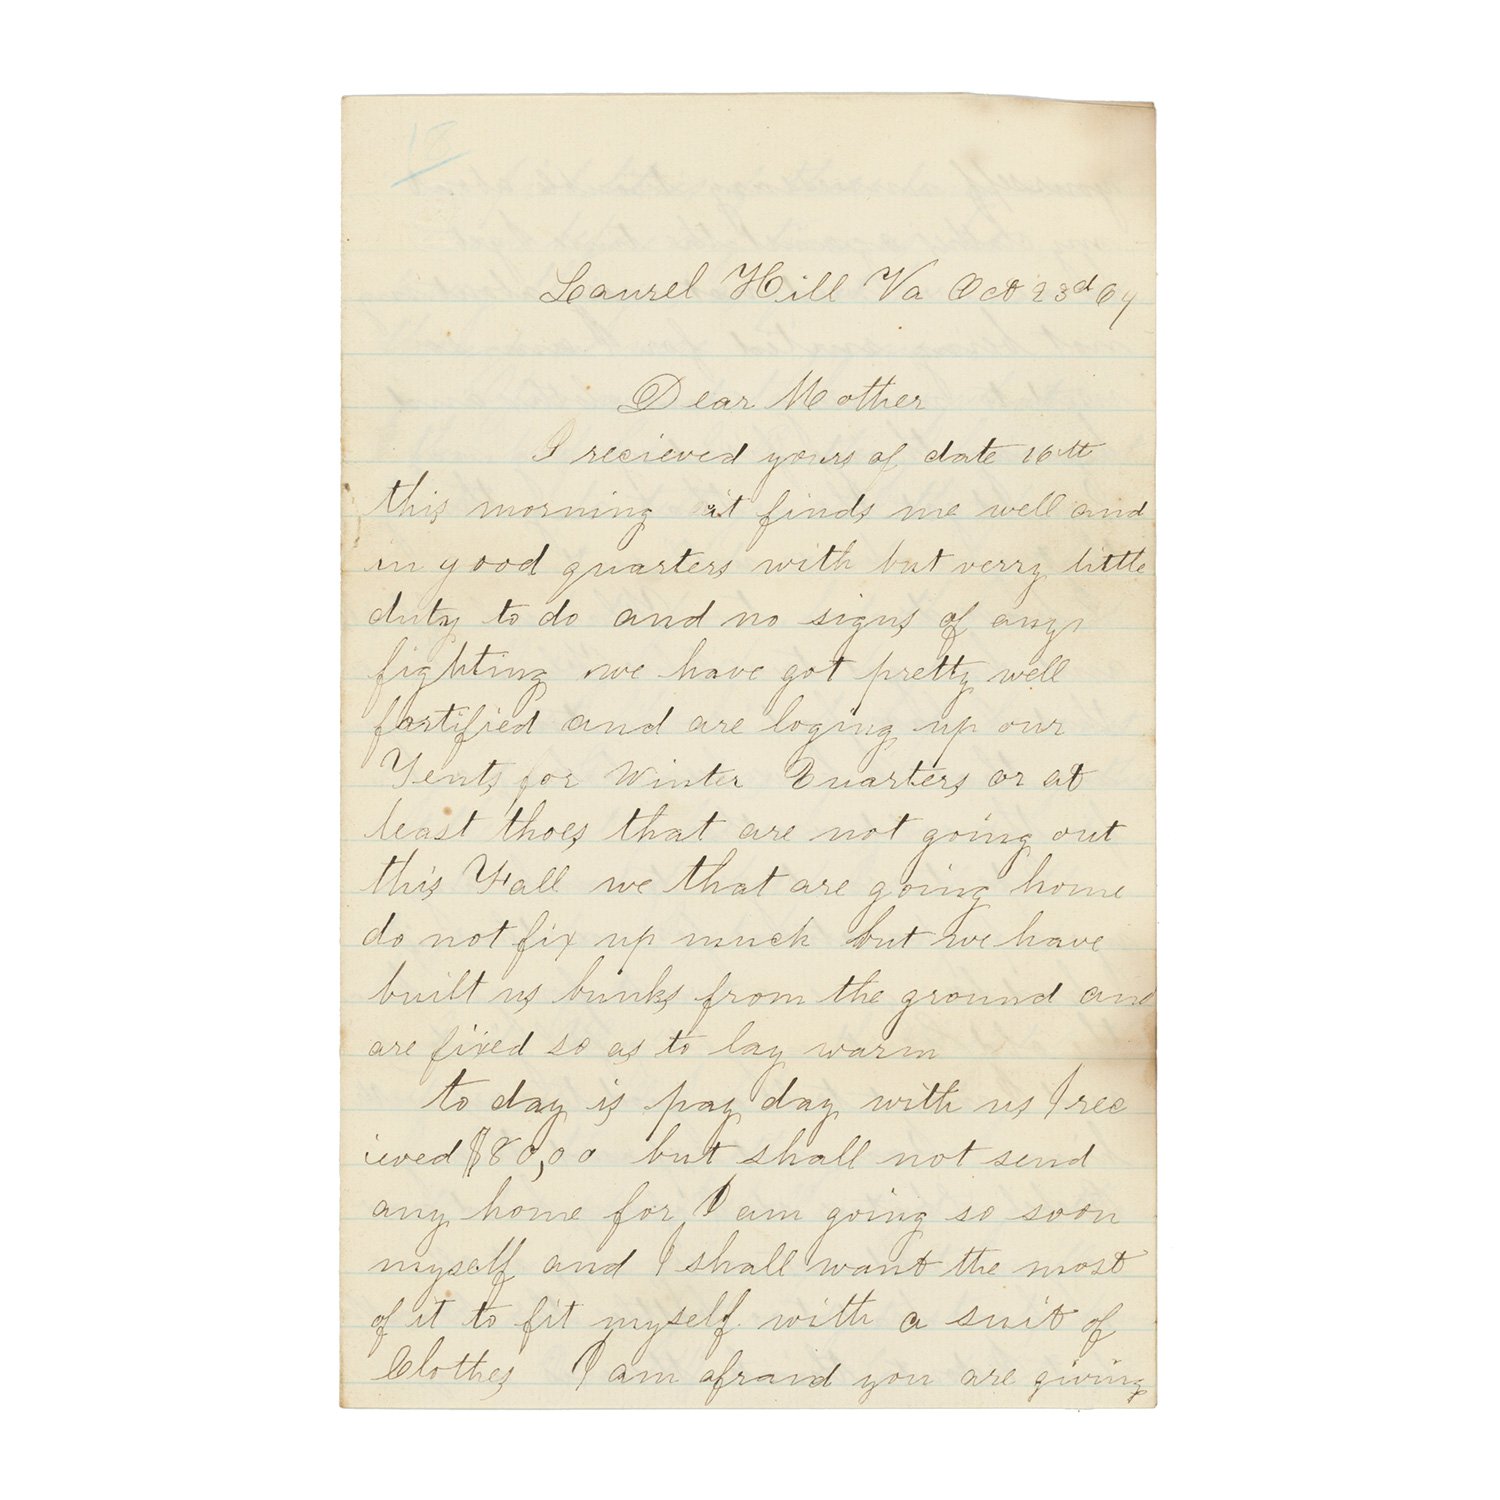 Laurel Hill Va Oct 23d 64
Dear Mother
I recieved yours of date 16th
this morning it finds me well and
in good quarters with but verry little
duty to do and no signs of any
fighting we have got pretty well
fortified and are loging up our
Tents for Winter Quarters or at
least thoes that are not going out
this Fall we that are going home
do not fix up much but we have
built us bunks from the ground and
are fixed so as to lay warm
to day is pay day with us I rec
ieved $80,00 but shall not send
any home for I am going so soon
myself and I shall want the most
of it to fit myself with a suit of
Clothes I am afraid you are giving